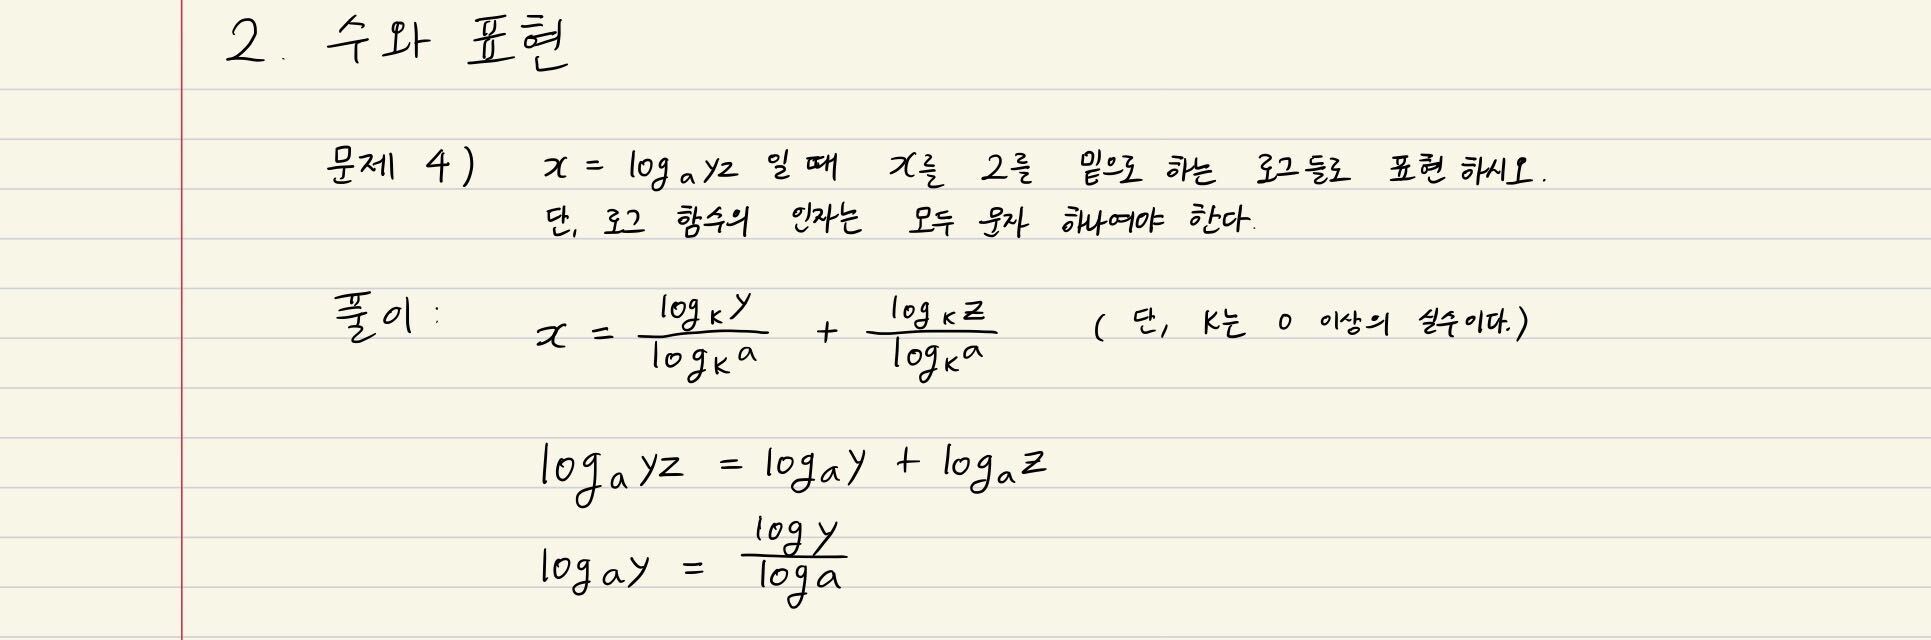 2. 수와 표현
문제 4) x = log_a yz 일 때 x를 2를 밑으로 하는 로그들로 표현 하시오.
단, 로그 함수의 인자는 모두 문자 하나여야 한다.
풀이: x = \frac{log_K y}{log_K a} + \frac{log_K z}{log_K a} ( 단, K는 0 이상의 실수이다.)
log_a yz = log_a y + log_a z
log_a y = \frac{log y}{log a}